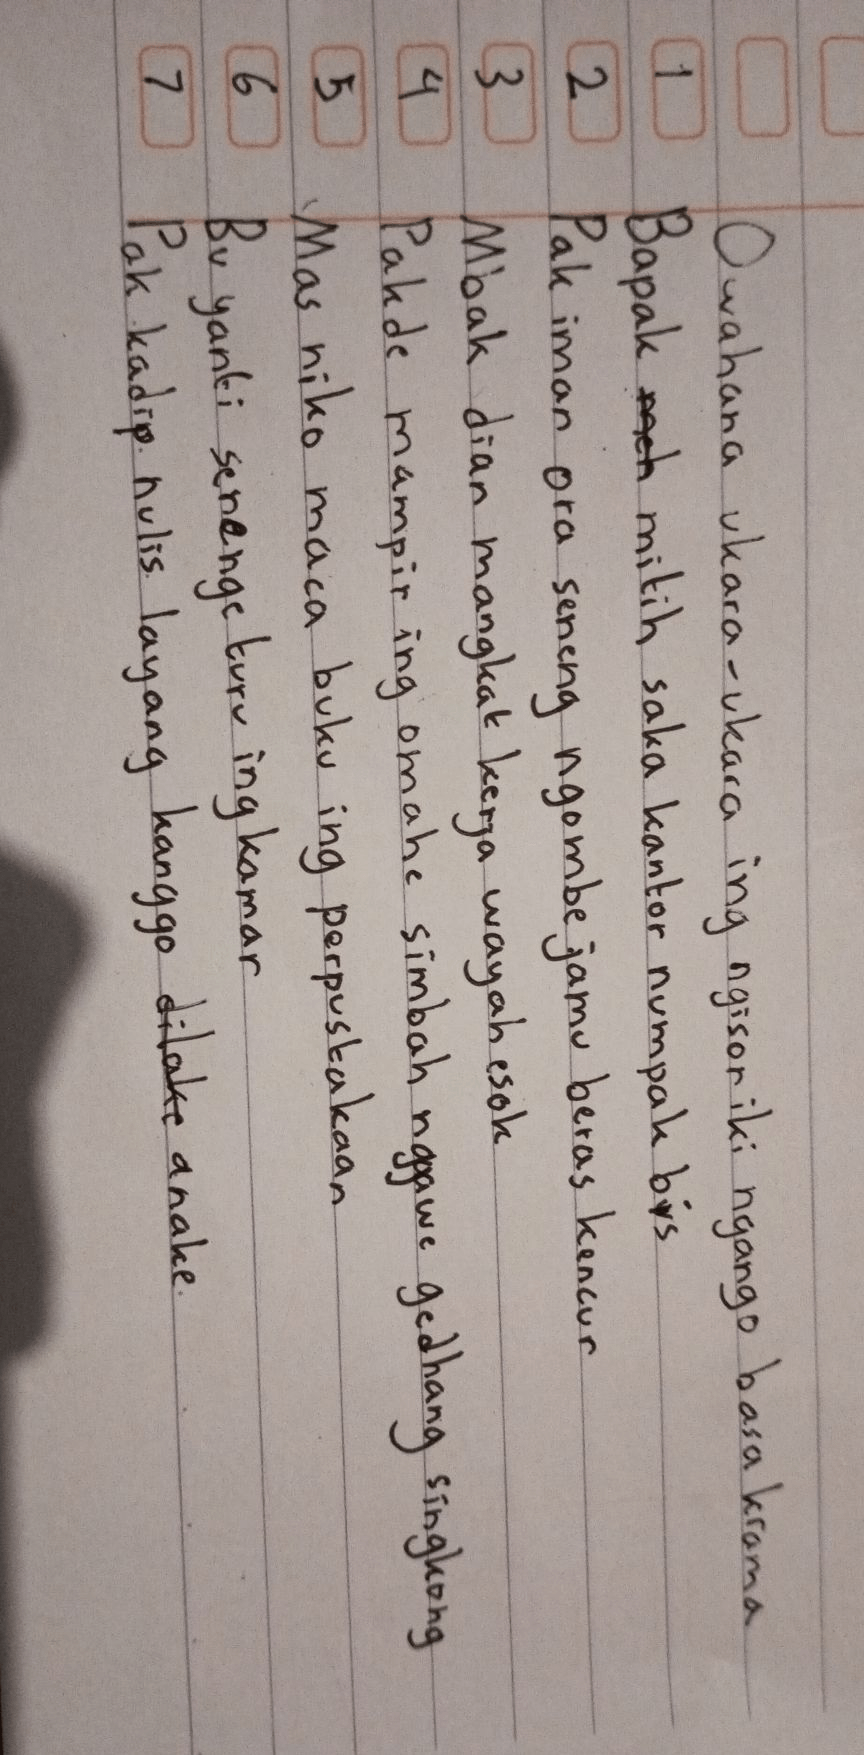 Owahana ukara-ukara ing ngisor iki ngango basa krama
1 Bapak mulih saka kantor numpak bis
2 Pak iman ora seneng ngombe jamu beras kencur
3 Mbak dian mangkat kerja wayah esok
4 Pakde mampir ing omahe simbah nggawe gedhang singkong
5 Mas niko maca buku ing perpustakaan
6 Bu yanti senenge turu ing kamar
7 Pak kadip nulis layang kanggo anake.